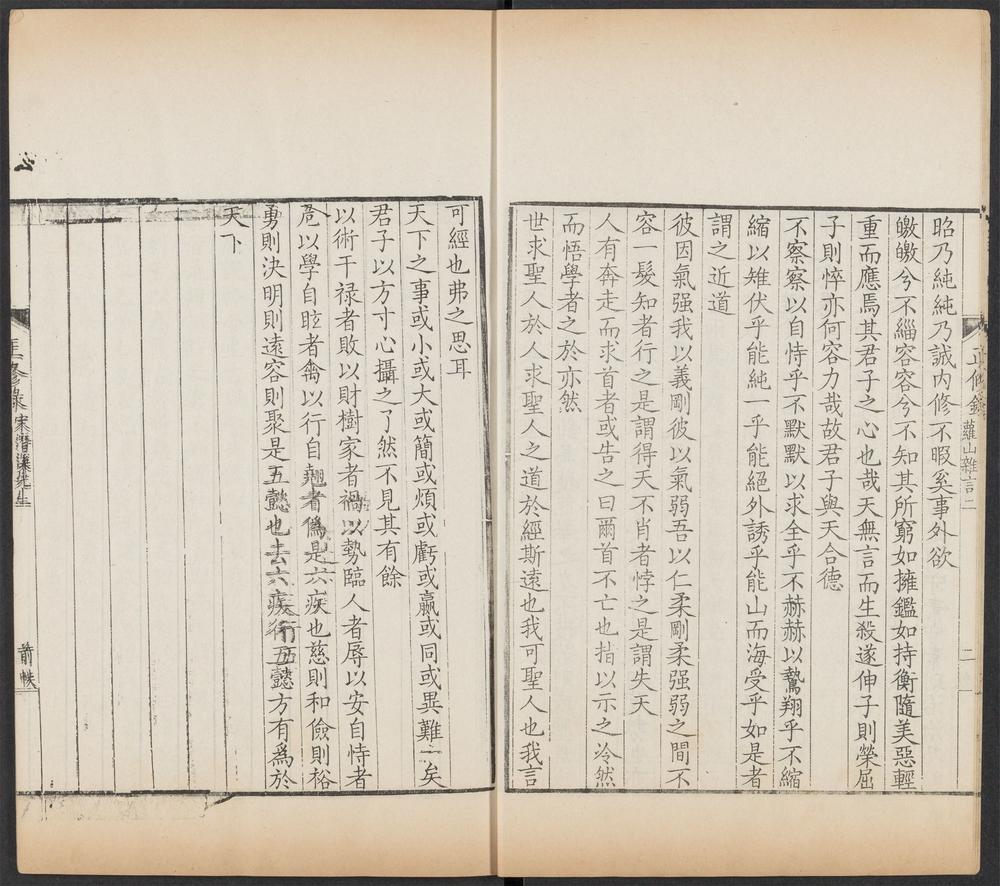 正修錄
蘿山雜言二
二
昭乃純純乃誠内修不暇奚事外欲
皦皦兮不緇容容兮不知其所窮如擁鑑如持衡隨美惡輕
重而應焉其君子之心也哉天無言而生殺遂伸子則榮屈
子則悴亦何容力哉故君子與天合德
不察察以自恃乎不默默以求全乎不赫赫以驚翔乎不縮
縮以雉伏乎能純一乎能絕外誘乎能山而海受乎如是者
謂之近道
彼因氣强我以義剛彼以氣弱吾以仁柔剛柔强弱之間不
容一髮知者行之是謂得天不肖者悖之是謂失天
人有奔走而求首者或告之曰爾首不亡也指以示之冷然
而悟學者之於亦然
世求聖人於人求聖人之道於經斯遠也我可聖人也我言
可經也弗之思耳
天下之事或小或大或簡或煩或虧或贏或同或異難一矣
君子以方寸心攝之了然不見其有餘
以術干禄者敗以財樹家者禍以勢臨人者辱以安自恃者
危以學自眩者禽以行自翹者僞是六疾也慈則和儉則裕
勇則決明則遠容則聚是五懿也去六疾行五懿方有爲於
天下
修錄
宋潛溪先生
前帙